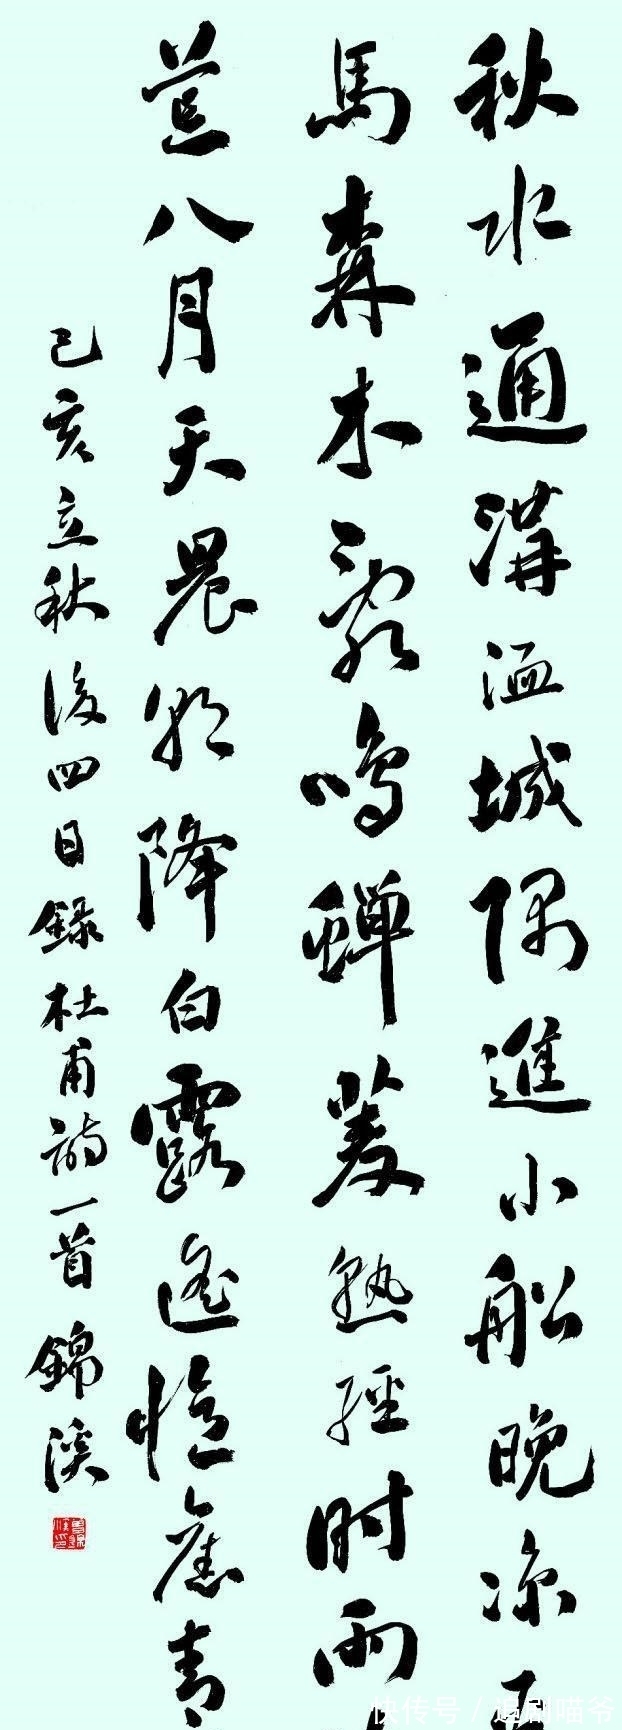 秋水通溝洫城隅進小船晚凉
馬森木亂鳴蟬菱熟經时雨
荒八月天晨朝降白露遙憶舊青
己亥立秋後四日錄杜甫詩一首 錦溪
快传号 / 追剧喵爷